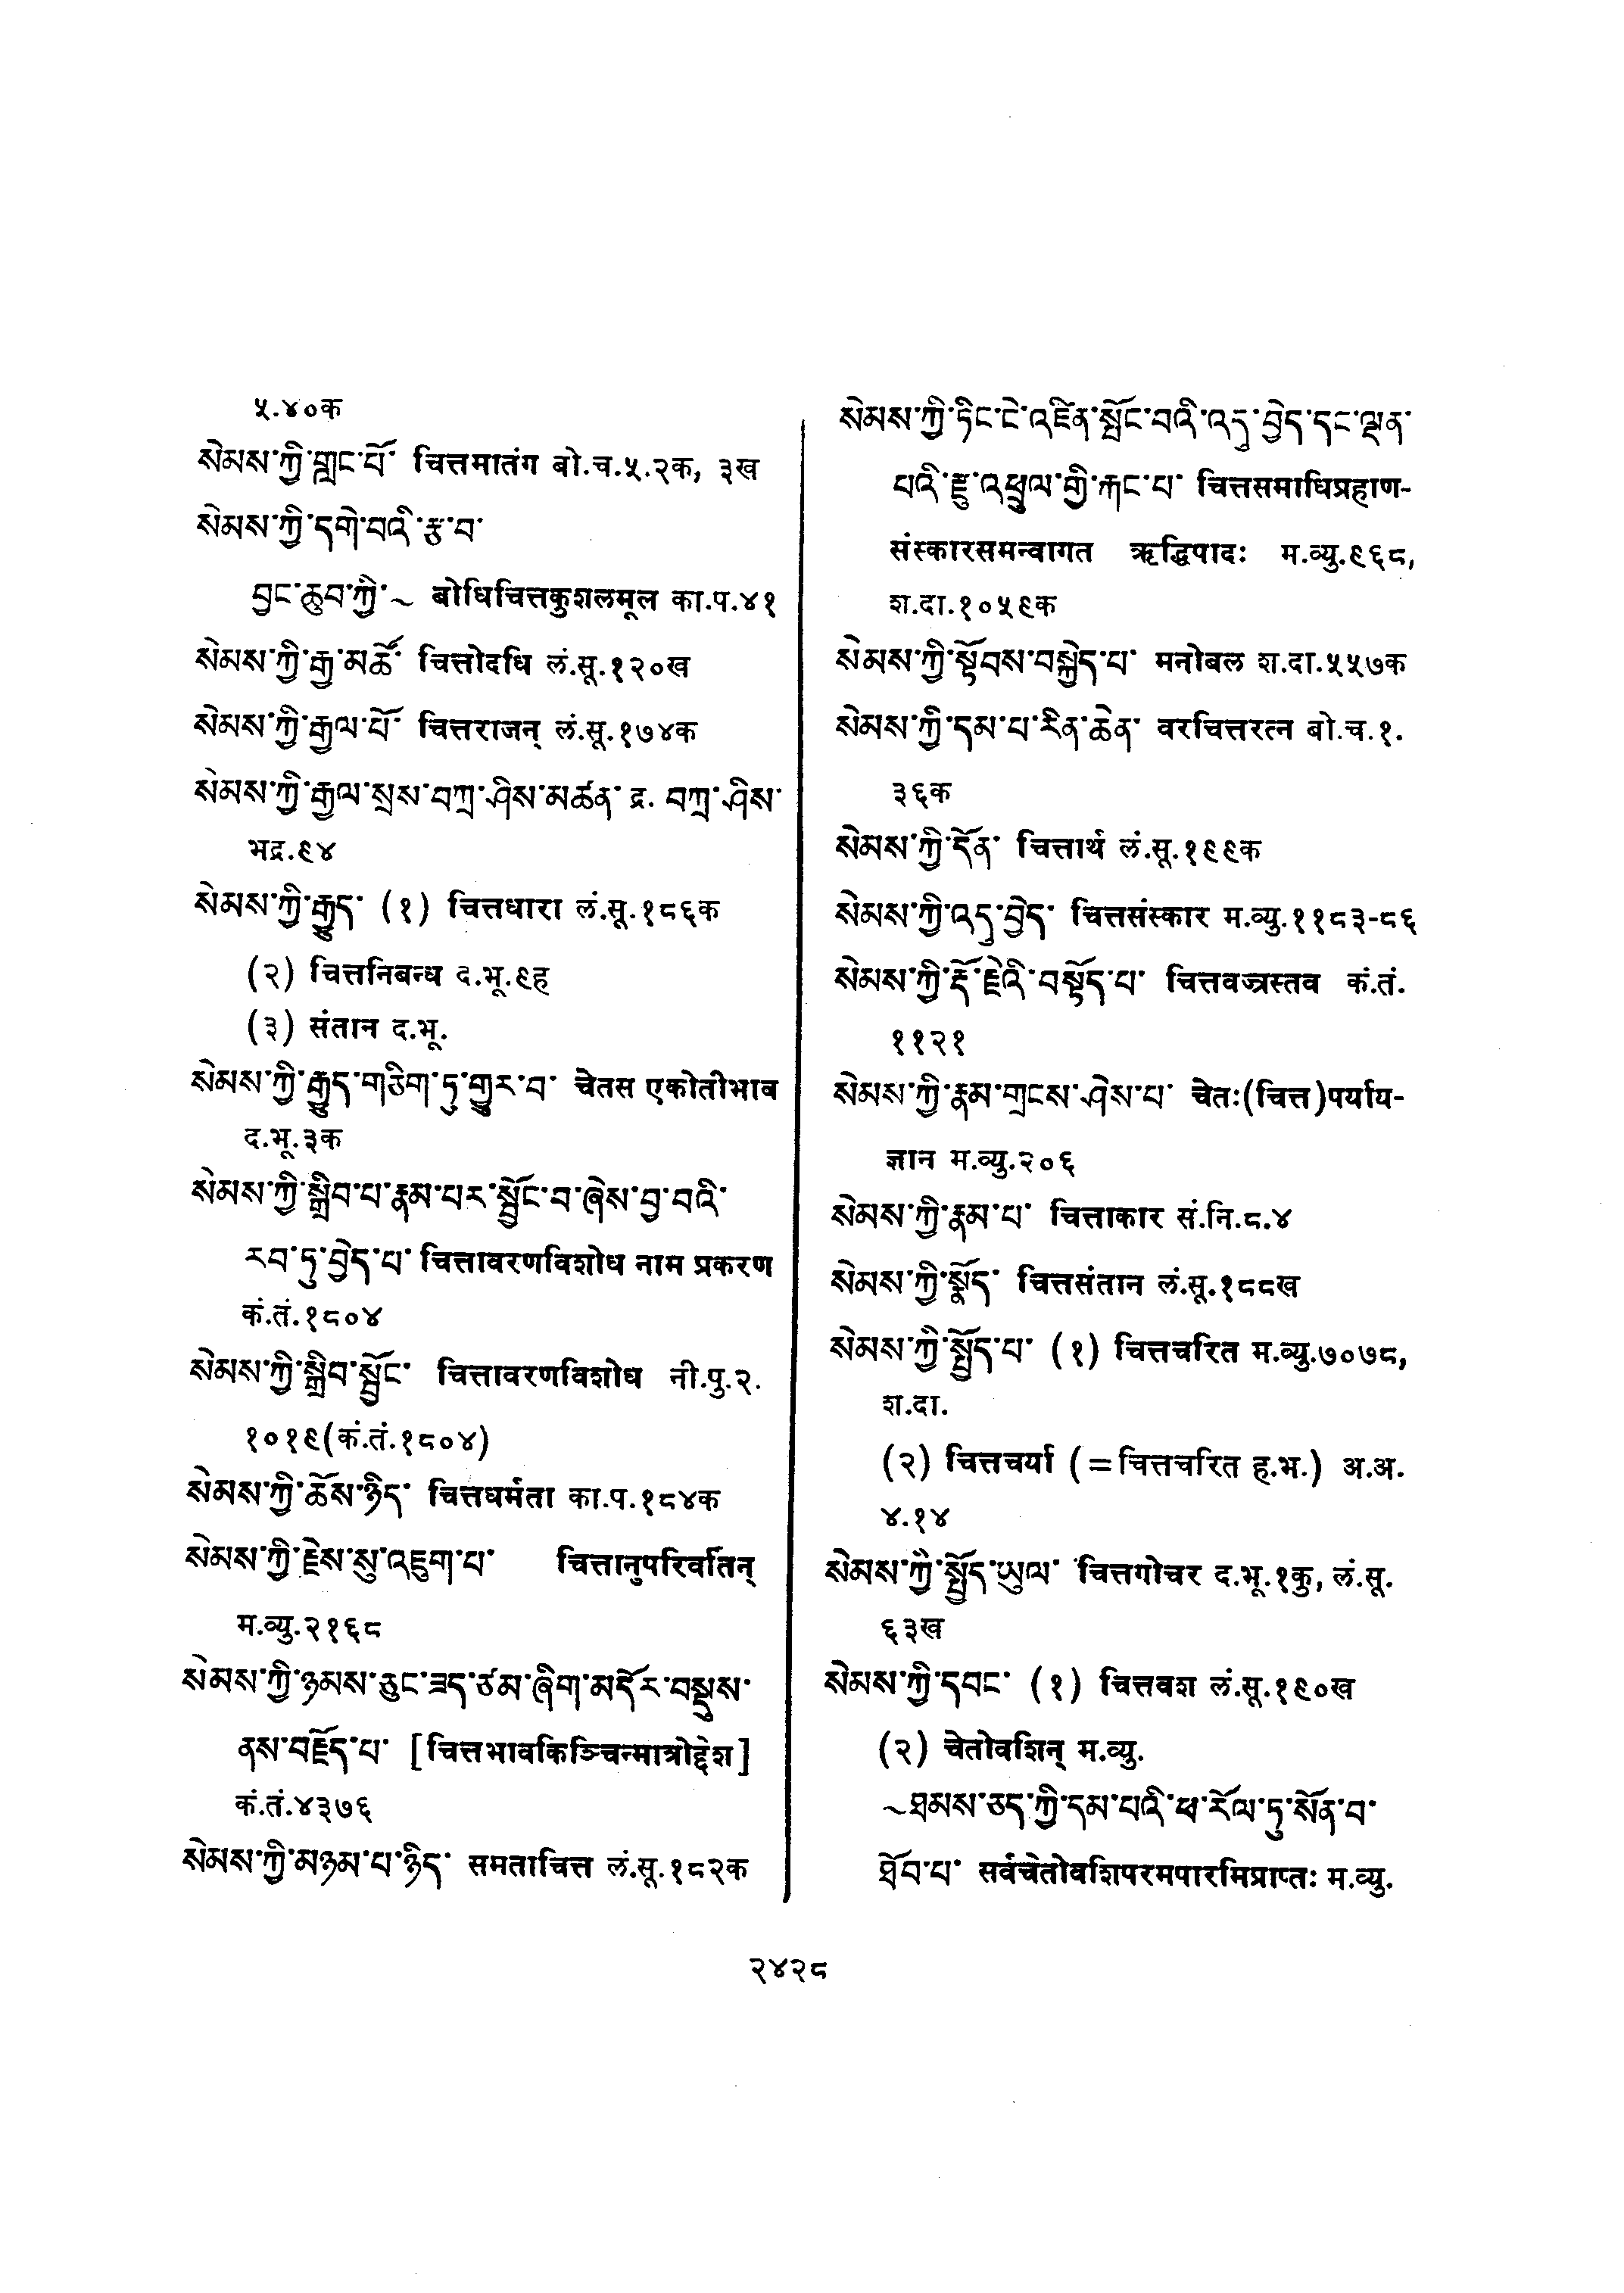 ५.४०क
སེམས་ཀྱི་གླང་པོ་ चित्तमातंग बो.च.५.२क, ३ख
སེམས་ཀྱི་དགེ་བའི་རྩ་བ་
བྱང་ཆུབ་ཀྱི་~ बोधिचित्तकुशलमूल का.प.४१
སེམས་ཀྱི་རྒྱ་མཚོ་ चित्तोदधि लं.सू.१२०ख
སེམས་ཀྱི་རྒྱལ་པོ་ चित्तराजन् लं.सू.१७४क
སེམས་ཀྱི་རྒྱལ་སྲས་བཀྲ་ཤིས་མཚན་ द्र. བཀྲ་ཤིས་
भद्र.९४
སེམས་ཀྱི་རྒྱུད་ (१) चित्तधारा लं.सू.१८६क
(२) चित्तनिबन्ध द.भू.९ह
(३) संतान द.भू.
སེམས་ཀྱི་རྒྱུད་གཅིག་ཏུ་གྱུར་བ་ चेतस एकोतीभाव
द.भू.३क
སེམས་ཀྱི་སྒྲིབ་པ་རྣམ་པར་སྦྱོང་བ་ཞེས་བྱ་བའི་
རབ་ཏུ་བྱེད་པ་ चित्तावरणविशोध नाम प्रकरण
कं.तं.१८०४
སེམས་ཀྱི་སྒྲིབ་སྦྱོང་ चित्तावरणविशोध नी.पु.२.
१०१९(कं.तं.१८०४)
སེམས་ཀྱི་ཆོས་ཉིད་ चित्तधर्मता का.प.१८४क
སེམས་ཀྱི་རྗེས་སུ་འཇུག་པ་ चित्तानुपरिवर्तिन्
म.व्यु.२१६८
སེམས་ཀྱི་ཉམས་ཅུང་ཟད་ཙམ་ཞིག་མདོར་བསྡུས་
ནས་བརྗོད་པ་ [चित्तभावकिञ्चिन्मात्रोद्देश]
कं.तं.४३७६
སེམས་ཀྱི་མཉམ་པ་ཉིད་ समताचित्त लं.सू.१८२क
སེམས་ཀྱི་ཏིང་ངེ་འཛིན་སྤོང་བའི་འདུ་བྱེད་དང་ལྡན་
པའི་རྫུ་འཕྲུལ་གྱི་རྐང་པ་ चित्तसमाधिप्रहाण-
संस्कारसमन्वागत ऋद्धिपादः म.व्यु.९६८,
श.दा.१०५९क
སེམས་ཀྱི་སྟོབས་བསྐྱེད་པ་ मनोबल श.दा.५५७क
སེམས་ཀྱི་དམ་པ་རིན་ཆེན་ वरचित्तरत्न बो.च.१.
३६क
སེམས་ཀྱི་དོན་ चित्तार्थ लं.सू.१९९क
སེམས་ཀྱི་འདུ་བྱེད་ चित्तसंस्कार म.व्यु.११८३-८६
སེམས་ཀྱི་རྡོ་རྗེའི་བསྟོད་པ་ चित्तवज्रस्तव कं.तं.
११२१
སེམས་ཀྱི་རྣམ་གྲངས་ཤེས་པ་ चेतः(चित्त)पर्याय-
ज्ञान म.व्यु.२०६
སེམས་ཀྱི་རྣམ་པ་ चित्ताकार सं.नि.८.४
སེམས་ཀྱི་སྣོད་ चित्तसंतान लं.सू.१८८ख
སེམས་ཀྱི་སྤྱོད་པ་ (१) चित्तचरित म.व्यु.७०७८,
श.दा.
(२) चित्तचर्या (=चित्तचरित ह.भ.) अ.अ.
४.१४
སེམས་ཀྱི་སྤྱོད་ཡུལ་ चित्तगोचर द.भू.१कु, लं.सू.
६३ख
སེམས་ཀྱི་དབང་ (१) चित्तवश लं.सू.१९०ख
(२) चेतोवशिन् म.व्यु.
~ཐམས་ཅད་ཀྱི་དམ་པའི་ཕ་རོལ་ཏུ་སོན་བ་
ཐོབ་པ་ सर्वचेतोवशिपरमपारमिप्राप्तः म.व्यु.
२४२८